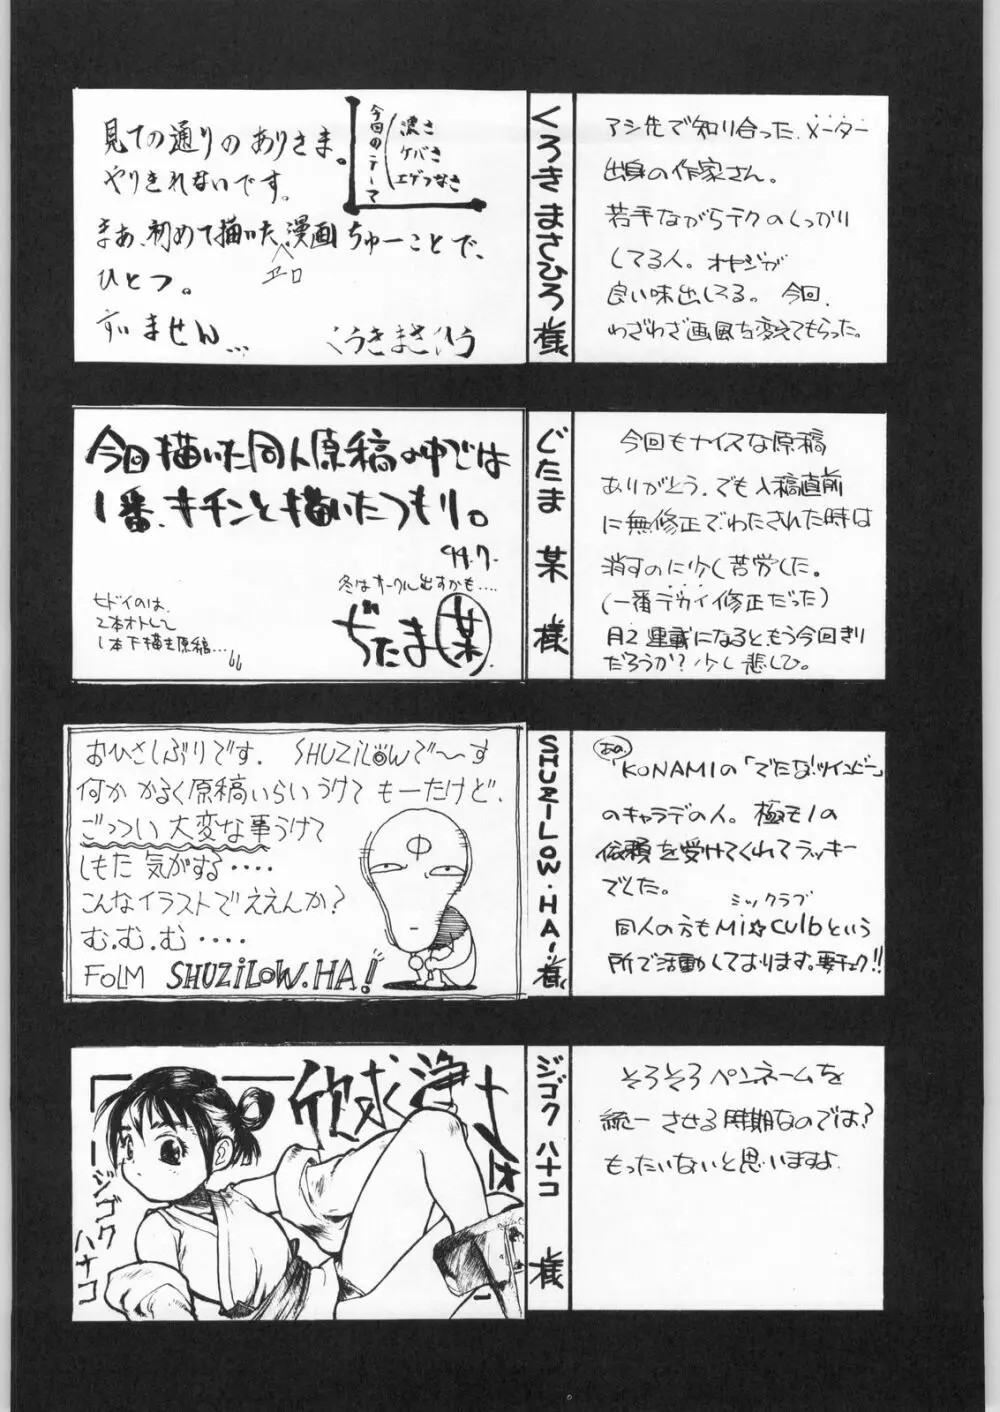 見ての通りのありさま。
やりきれないです。
まあ、初めて描いた漫画ちゅーことで、
エロ
ひとつ。
すいません...
くろきまさひろ
今回のテーマ
濃さ
ケバさ
エゲつなさ
くろきまさひろ様
アシ先で知り合った、メーター
出身の作家さん。
若手ながらテクのしっかり
してる人。オヤジが
良い味出してる。今回、
わざわざ画風を変えてもらった。
今回描いた同人原稿の中では
1番、キチンと描いたつもり。
99.7.
冬はサークル出すかも....
ぢたま(某)
ヒドイのは、
2本オトして
1本下描き原稿...
ぢたま 某 様
今回もナイスな原稿
ありがとう。でも入稿直前
に無修正でわたされた時は
消すのに少し苦労した。
(一番デカイ修正だった)
月2連載になると、もう今回きり
だろうか?少し悲しひ。
おひさしぶりです. SHUZILOWで〜す
何か かるく原稿いらい うけて もーたけど、
ごっつい 大変な事うけて
しもた 気がする・・・・
こんなイラストでええんか?
む.む.む・・・・
FOLM SHUZILOW.HA!
中
SHUZILOW.HA!様
あの、
「KONAMIの「でたな!ツインビー」
のキャラデの人。極モノの
依頼を受けてくれてラッキー
でした。
ミックラブ
同人の方もMi☆Culbという
所で活動しております。要チェク!!
欣求浄土
ジゴクハナコ
ジゴク ハナコ 様
そろそろペンネームを
統一させる時期なのでは?
もったいないと思いますよ